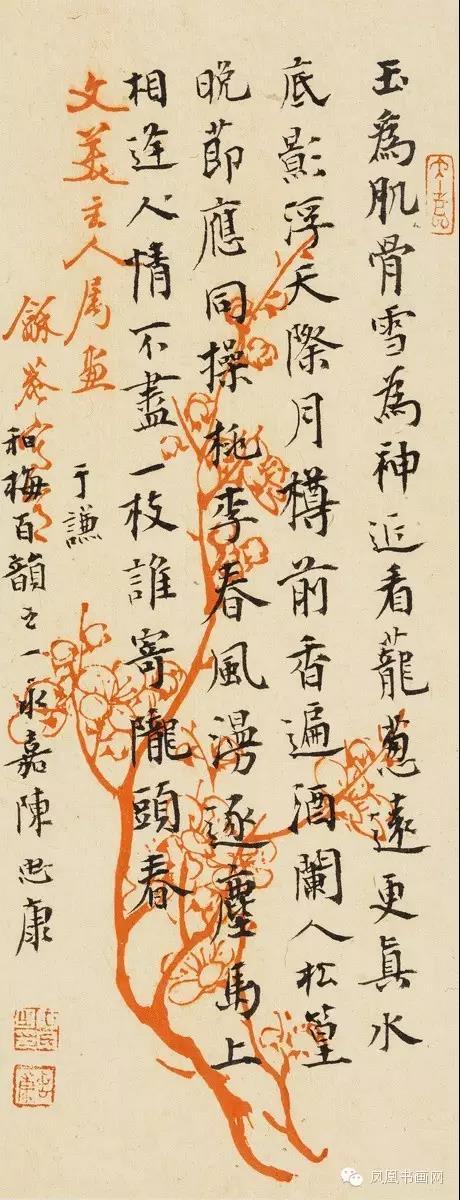 玉為肌骨雪為神近看蘢蔥遠更真水
底影浮天際月樽前香遍酒闌人松篁
晚節應同操桃李春風漫逐塵馬上
相逢人情不盡一枝誰寄隴頭春
于謙
和梅百韻之一永嘉陳忠康
文美主人属畫
穌菴
凤凰书画网